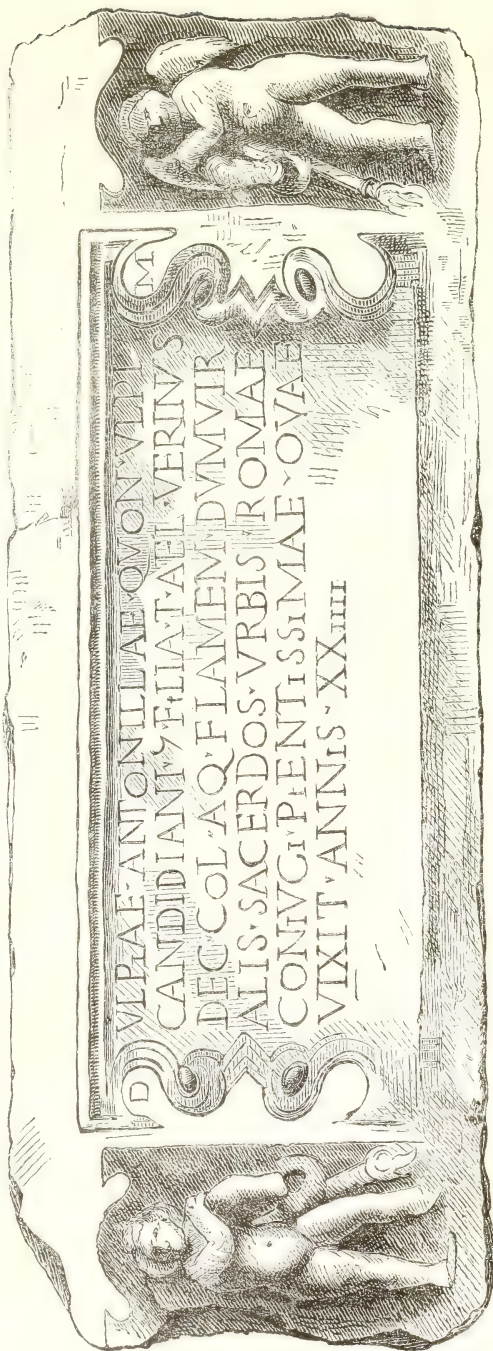 D M
VLPIAE · ANTONILLAE · QVONDM · VLPI
CANDIDIANI · 7 · FILIA · T · AEL · VERINVS
DEC · COL · AQ · FLAMEM · DVMVIR
ALIS · SACERDOS · VRBIS · ROMAE
CONIVGI · PIENTISSIMAE · QVAE
VIXIT · ANNIS · XXIIII